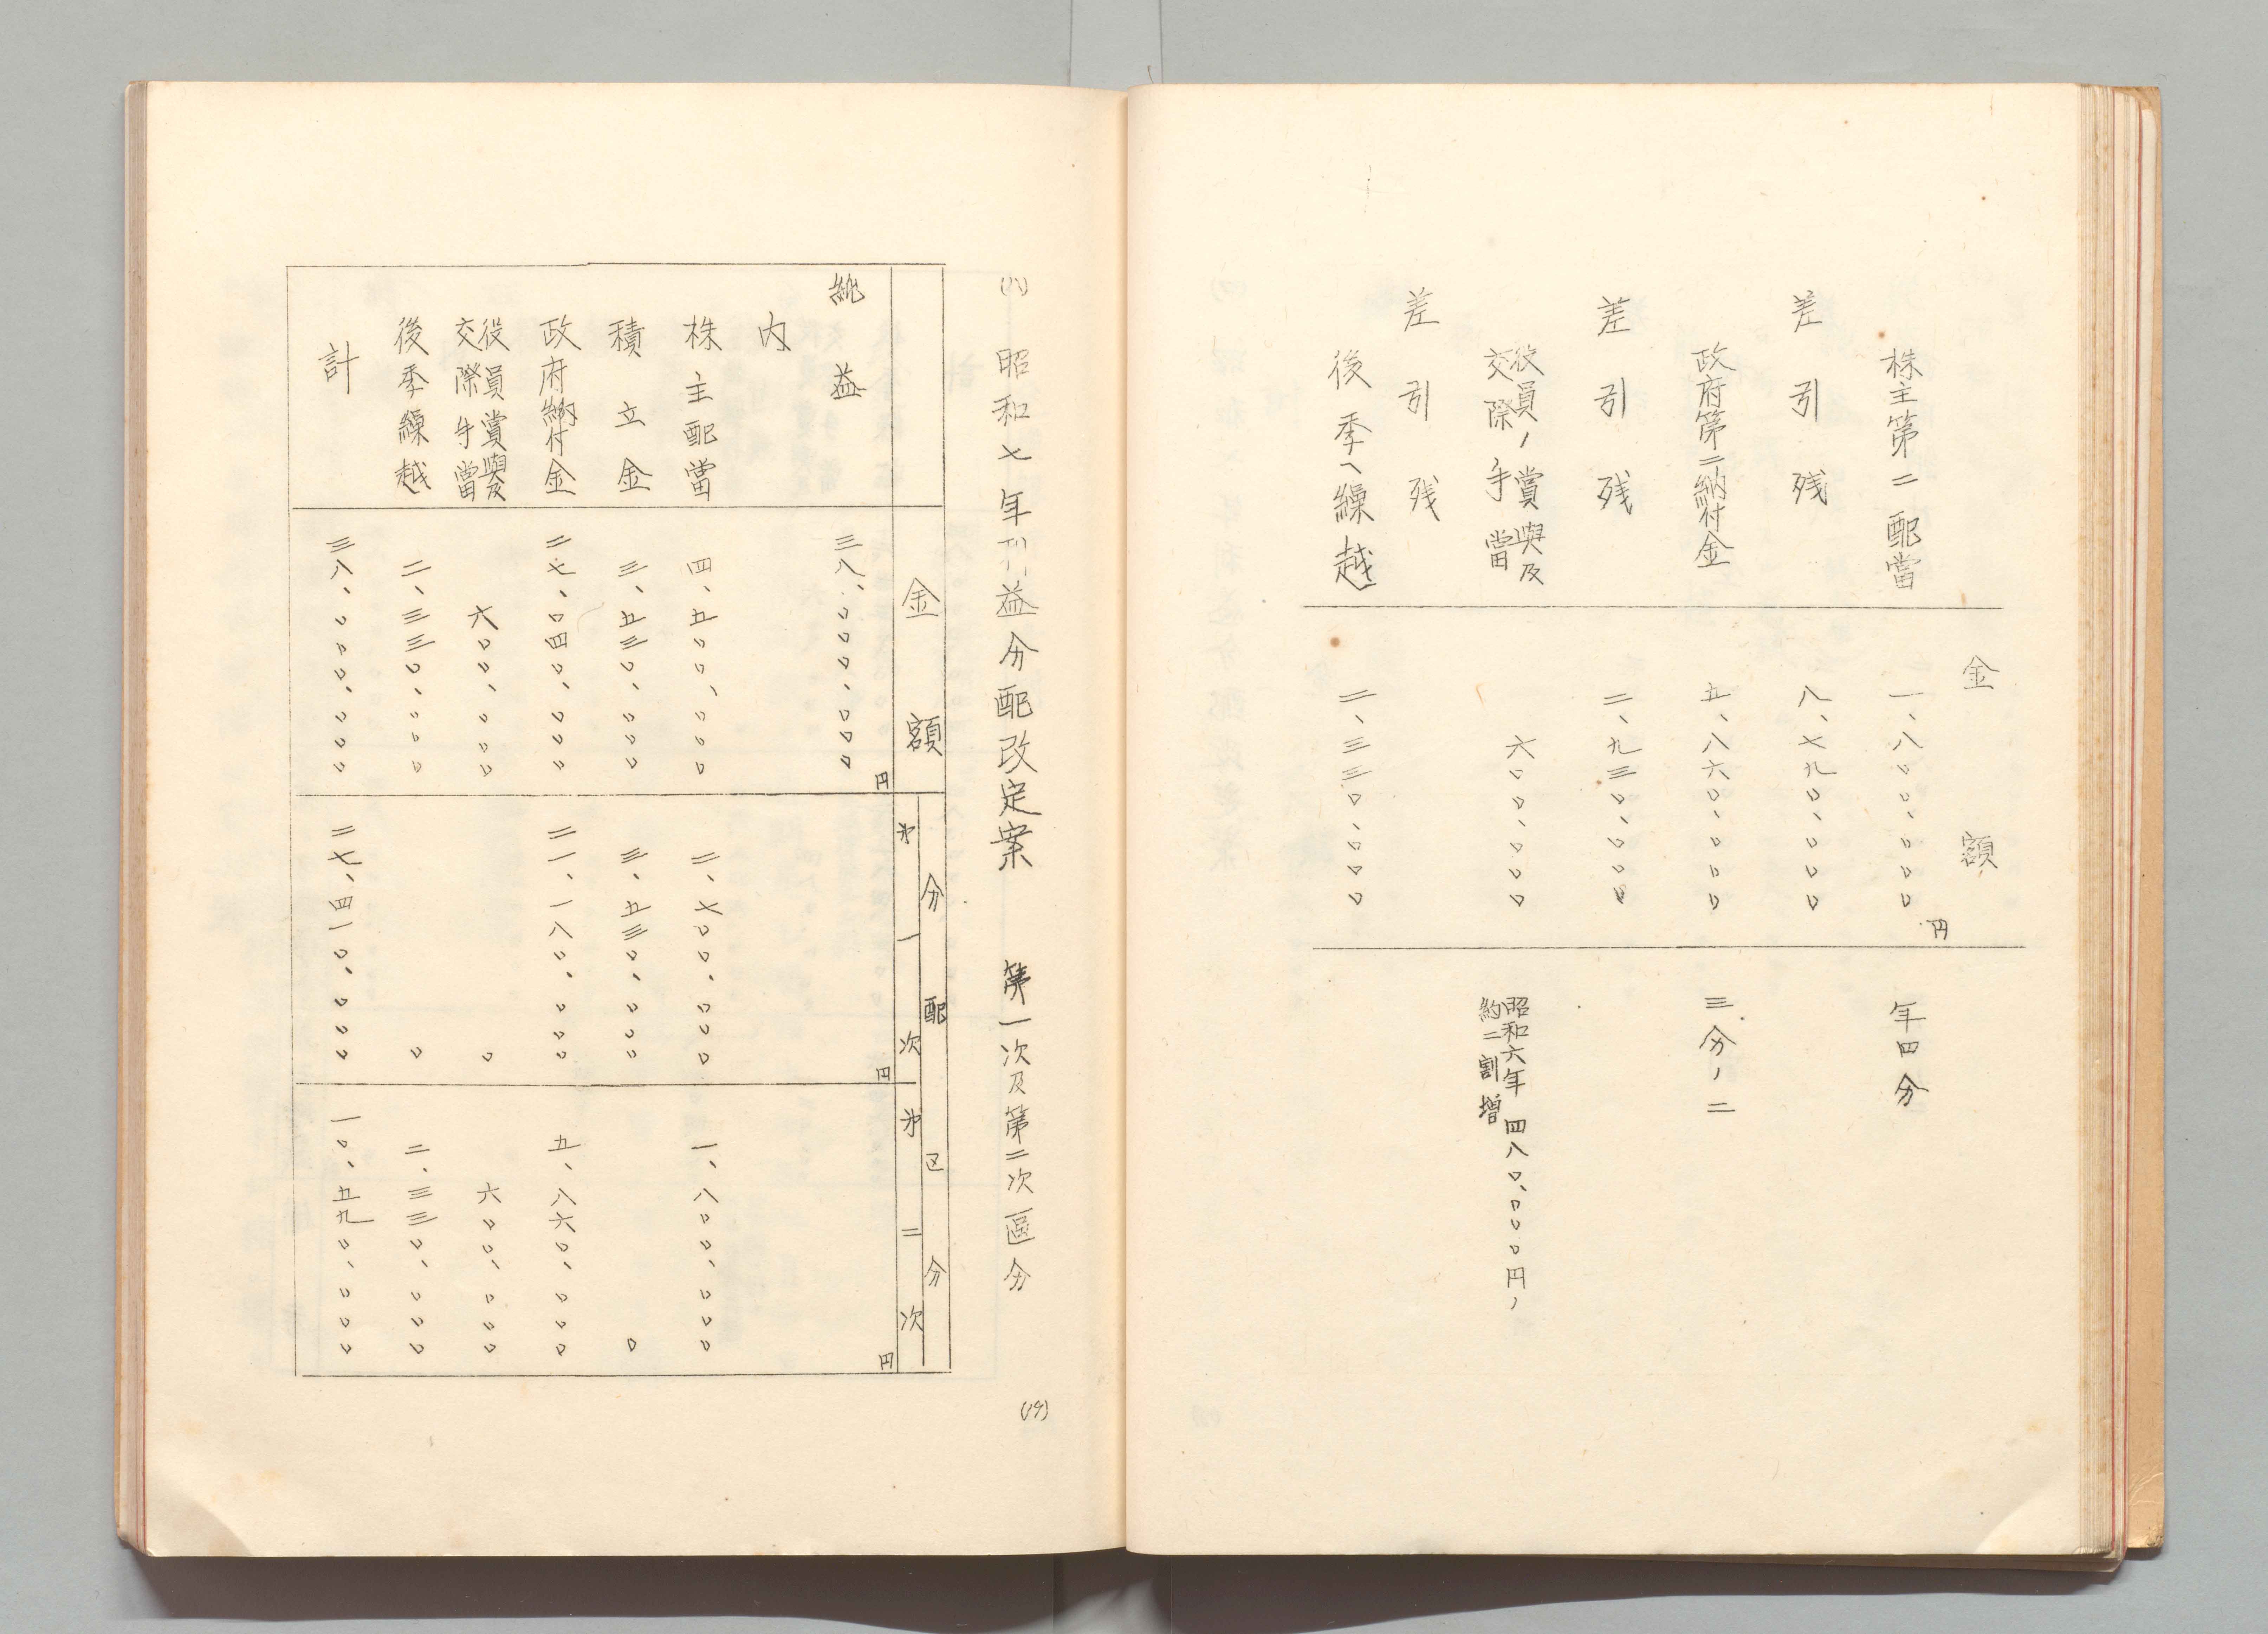 金額
円
株主第二配當 一、八〇〇、〇〇〇 年四分
差引残 八、七九〇、〇〇〇
政府第二納付金 五、八六〇、〇〇〇 三分ノ二
差引残 二、九三〇、〇〇〇
役員ノ賞與及交際手當 六〇〇、〇〇〇 昭和六年 四八〇、〇〇〇円ノ約二割増
差引残
後季ヘ繰越 二、三三〇、〇〇〇
(八) 昭和七年利益分配改定案 第一次及第二次區分
金額 分配区分
円 第一次 円 第二次 円
純益 三八、〇〇〇、〇〇〇
内
株主配當 四、五〇〇、〇〇〇 二、七〇〇、〇〇〇 一、八〇〇、〇〇〇
積立金 三、五三〇、〇〇〇 三、五三〇、〇〇〇 〇
政府納付金 二七、〇四〇、〇〇〇 二一、一八〇、〇〇〇 五、八六〇、〇〇〇
役員賞與及交際手當 六〇〇、〇〇〇 〇 六〇〇、〇〇〇
後季繰越 二、三三〇、〇〇〇 〇 二、三三〇、〇〇〇
計 三八、〇〇〇、〇〇〇 二七、四一〇、〇〇〇 一〇、五九〇、〇〇〇